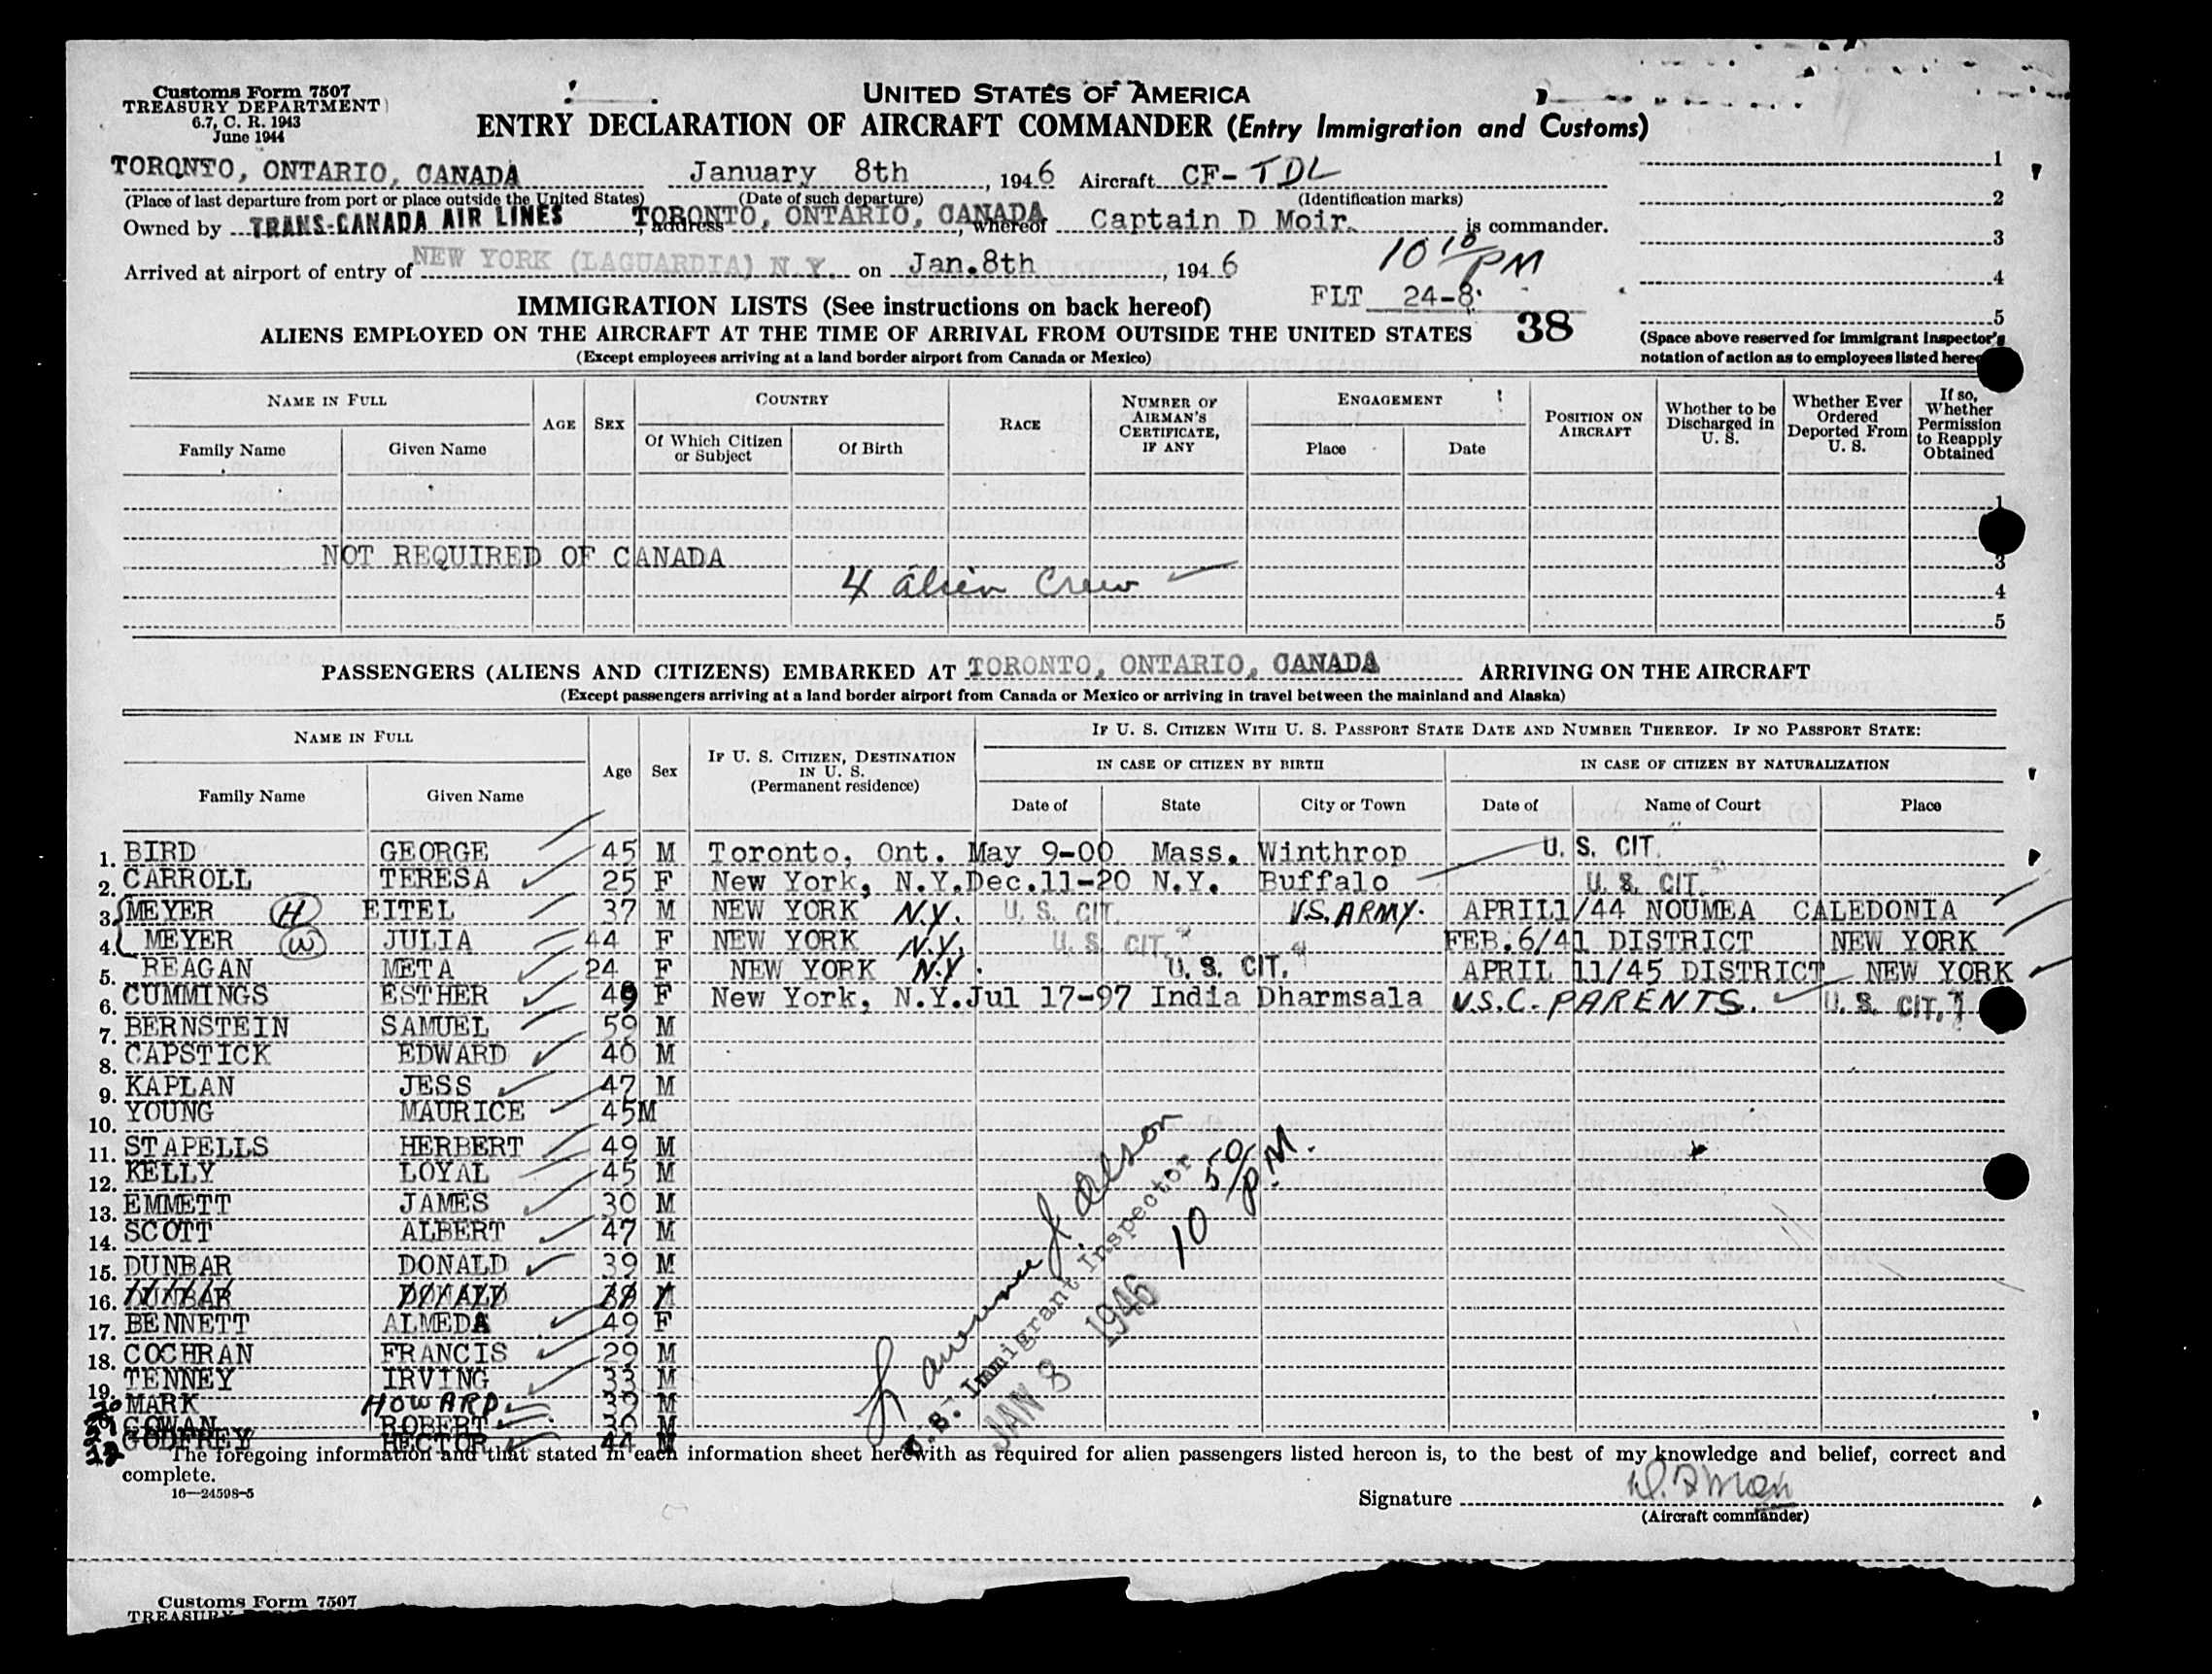 Customs Form 7507
TREASURY DEPARTMENT
6.7, C. R. 1943
June 1944
UNITED STATES OF AMERICA
ENTRY DECLARATION OF AIRCRAFT COMMANDER (Entry Immigration and Customs)
TORONTO, ONTARIO, CANADA January 8th, 1946 Aircraft CF-TDL
(Place of last departure from port or place outside the United States) (Date of such departure) (Identification marks)
Owned by TRANS-CANADA AIR LINES, address TORONTO, ONTARIO, CANADA, whereof Captain D Moir. is commander.
Arrived at airport of entry of NEW YORK (LAGUARDIA) N.Y. on Jan.8th, 1946 10 10/PM
FLT 24-8
38
1
2
3
4
5
(Space above reserved for Immigrant Inspector's
notation of action as to employees listed
IMMIGRATION LISTS (See instructions on back hereof)
ALIENS EMPLOYED ON THE AIRCRAFT AT THE TIME OF ARRIVAL FROM OUTSIDE THE UNITED STATES
(Except employees arriving at a land border airport from Canada or Mexico)
NAME IN FULL
Family Name Given Name
AGE SEX
COUNTRY
Of Which Citizen or Subject Of Birth
RACE
NUMBER OF AIRMAN'S CERTIFICATE, IF ANY
ENGAGEMENT
Place Date
POSITION ON AIRCRAFT
Whether to be Discharged in U. S.
Whether Ever Ordered Deported From U. S.
If so, Whether Permission to Reapply Obtained
1
NOT REQUIRED OF CANADA 3
4 alien Crew 4
5
PASSENGERS (ALIENS AND CITIZENS) EMBARKED AT TORONTO, ONTARIO, CANADA ARRIVING ON THE AIRCRAFT
(Except passengers arriving at a land border airport from Canada or Mexico or arriving in travel between the mainland and Alaska)
NAME IN FULL
Family Name Given Name
Age Sex
IF U. S. CITIZEN, DESTINATION IN U. S.
(Permanent residence)
IF U. S. CITIZEN WITH U. S. PASSPORT STATE DATE AND NUMBER THEREOF. IF NO PASSPORT STATE:
IN CASE OF CITIZEN BY BIRTH IN CASE OF CITIZEN BY NATURALIZATION
Date of State City or Town Date of Name of Court Place
1. BIRD GEORGE 45 M Toronto, Ont. May 9-00 Mass. Winthrop U. S. CIT.
2. CARROLL TERESA 25 F New York, N.Y. Dec.11-20 N.Y. Buffalo U. S. CIT.
3. MEYER (H) EITEL 37 M NEW YORK N.Y. U. S. CIT. U.S. ARMY. APRIL1/44 NOUMEA CALEDONIA
4. MEYER (W) JULIA 44 F NEW YORK N.Y. U. S. CIT. FEB.6/41 DISTRICT NEW YORK
5. REAGAN META 24 F NEW YORK N.Y. U. S. CIT. APRIL 11/45 DISTRICT NEW YORK
6. CUMMINGS ESTHER 49 F New York, N.Y. Jul 17-97 India Dharmsala U.S.C. PARENTS. U. S. CIT.
7. BERNSTEIN SAMUEL 59 M
8. CAPSTICK EDWARD 40 M
9. KAPLAN JESS 47 M
10. YOUNG MAURICE 45M
11. STAPELLS HERBERT 49 M
12. KELLY LOYAL 45 M
13. EMMETT JAMES 30 M
14. SCOTT ALBERT 47 M
15. DUNBAR DONALD 39 M
16. DUNBAR DONALD 39 M
17. BENNETT ALMEDA 49 F
18. COCHRAN FRANCIS 29 M
19. TENNEY IRVING 33 M
20 MARK HOWARD. 39 M
21 COWAN ROBERT 30 M
22 GODFREY HECTOR 44 M
Lawrence J. Olson
U. S. Immigrant Inspector
10 50/P.M.
JAN 8 1946
The foregoing information and that stated in each information sheet herewith as required for alien passengers listed hereon is, to the best of my knowledge and belief, correct and
complete.
16—24598-5
Signature
(Aircraft commander)
Customs Form 7507